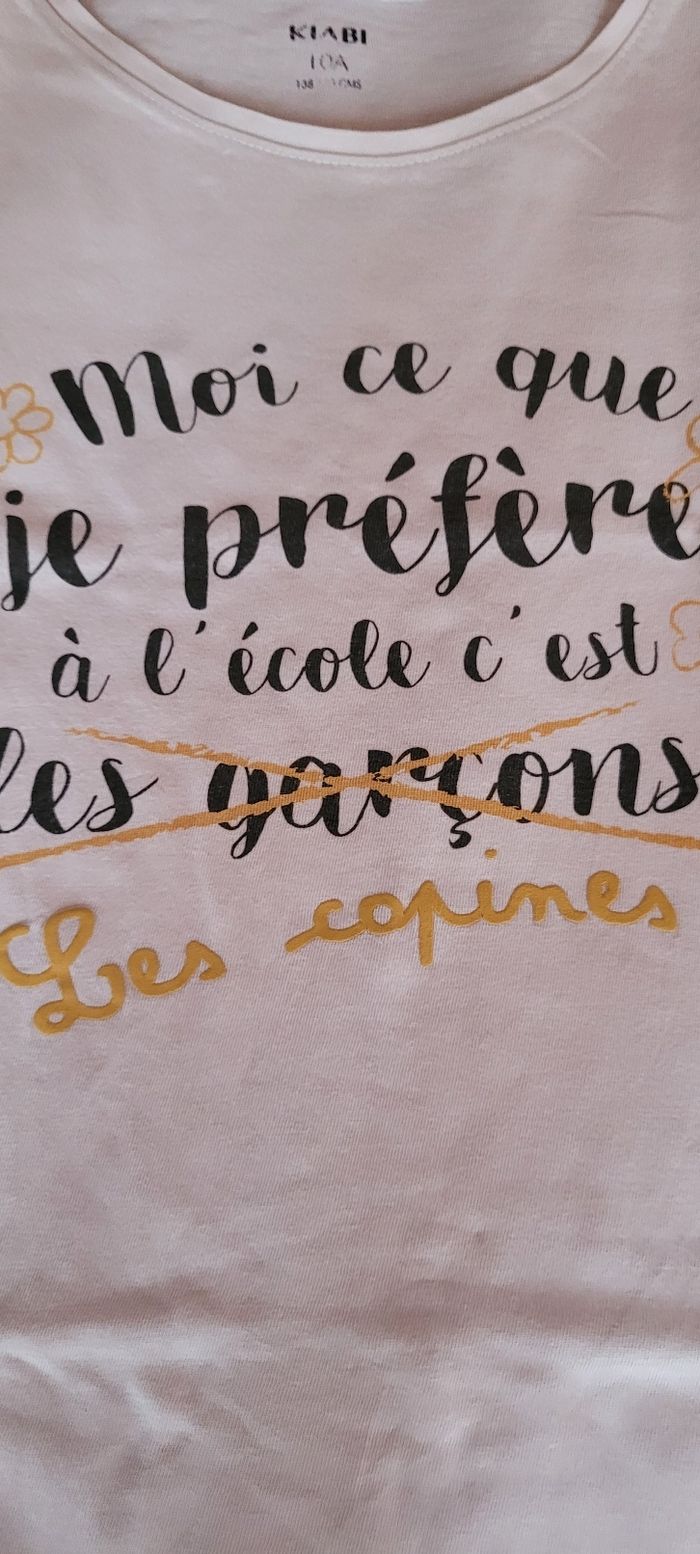 KIABI
10A
138
Moi ce que
je préfère
à l'école c'est
les garçons
Les copines